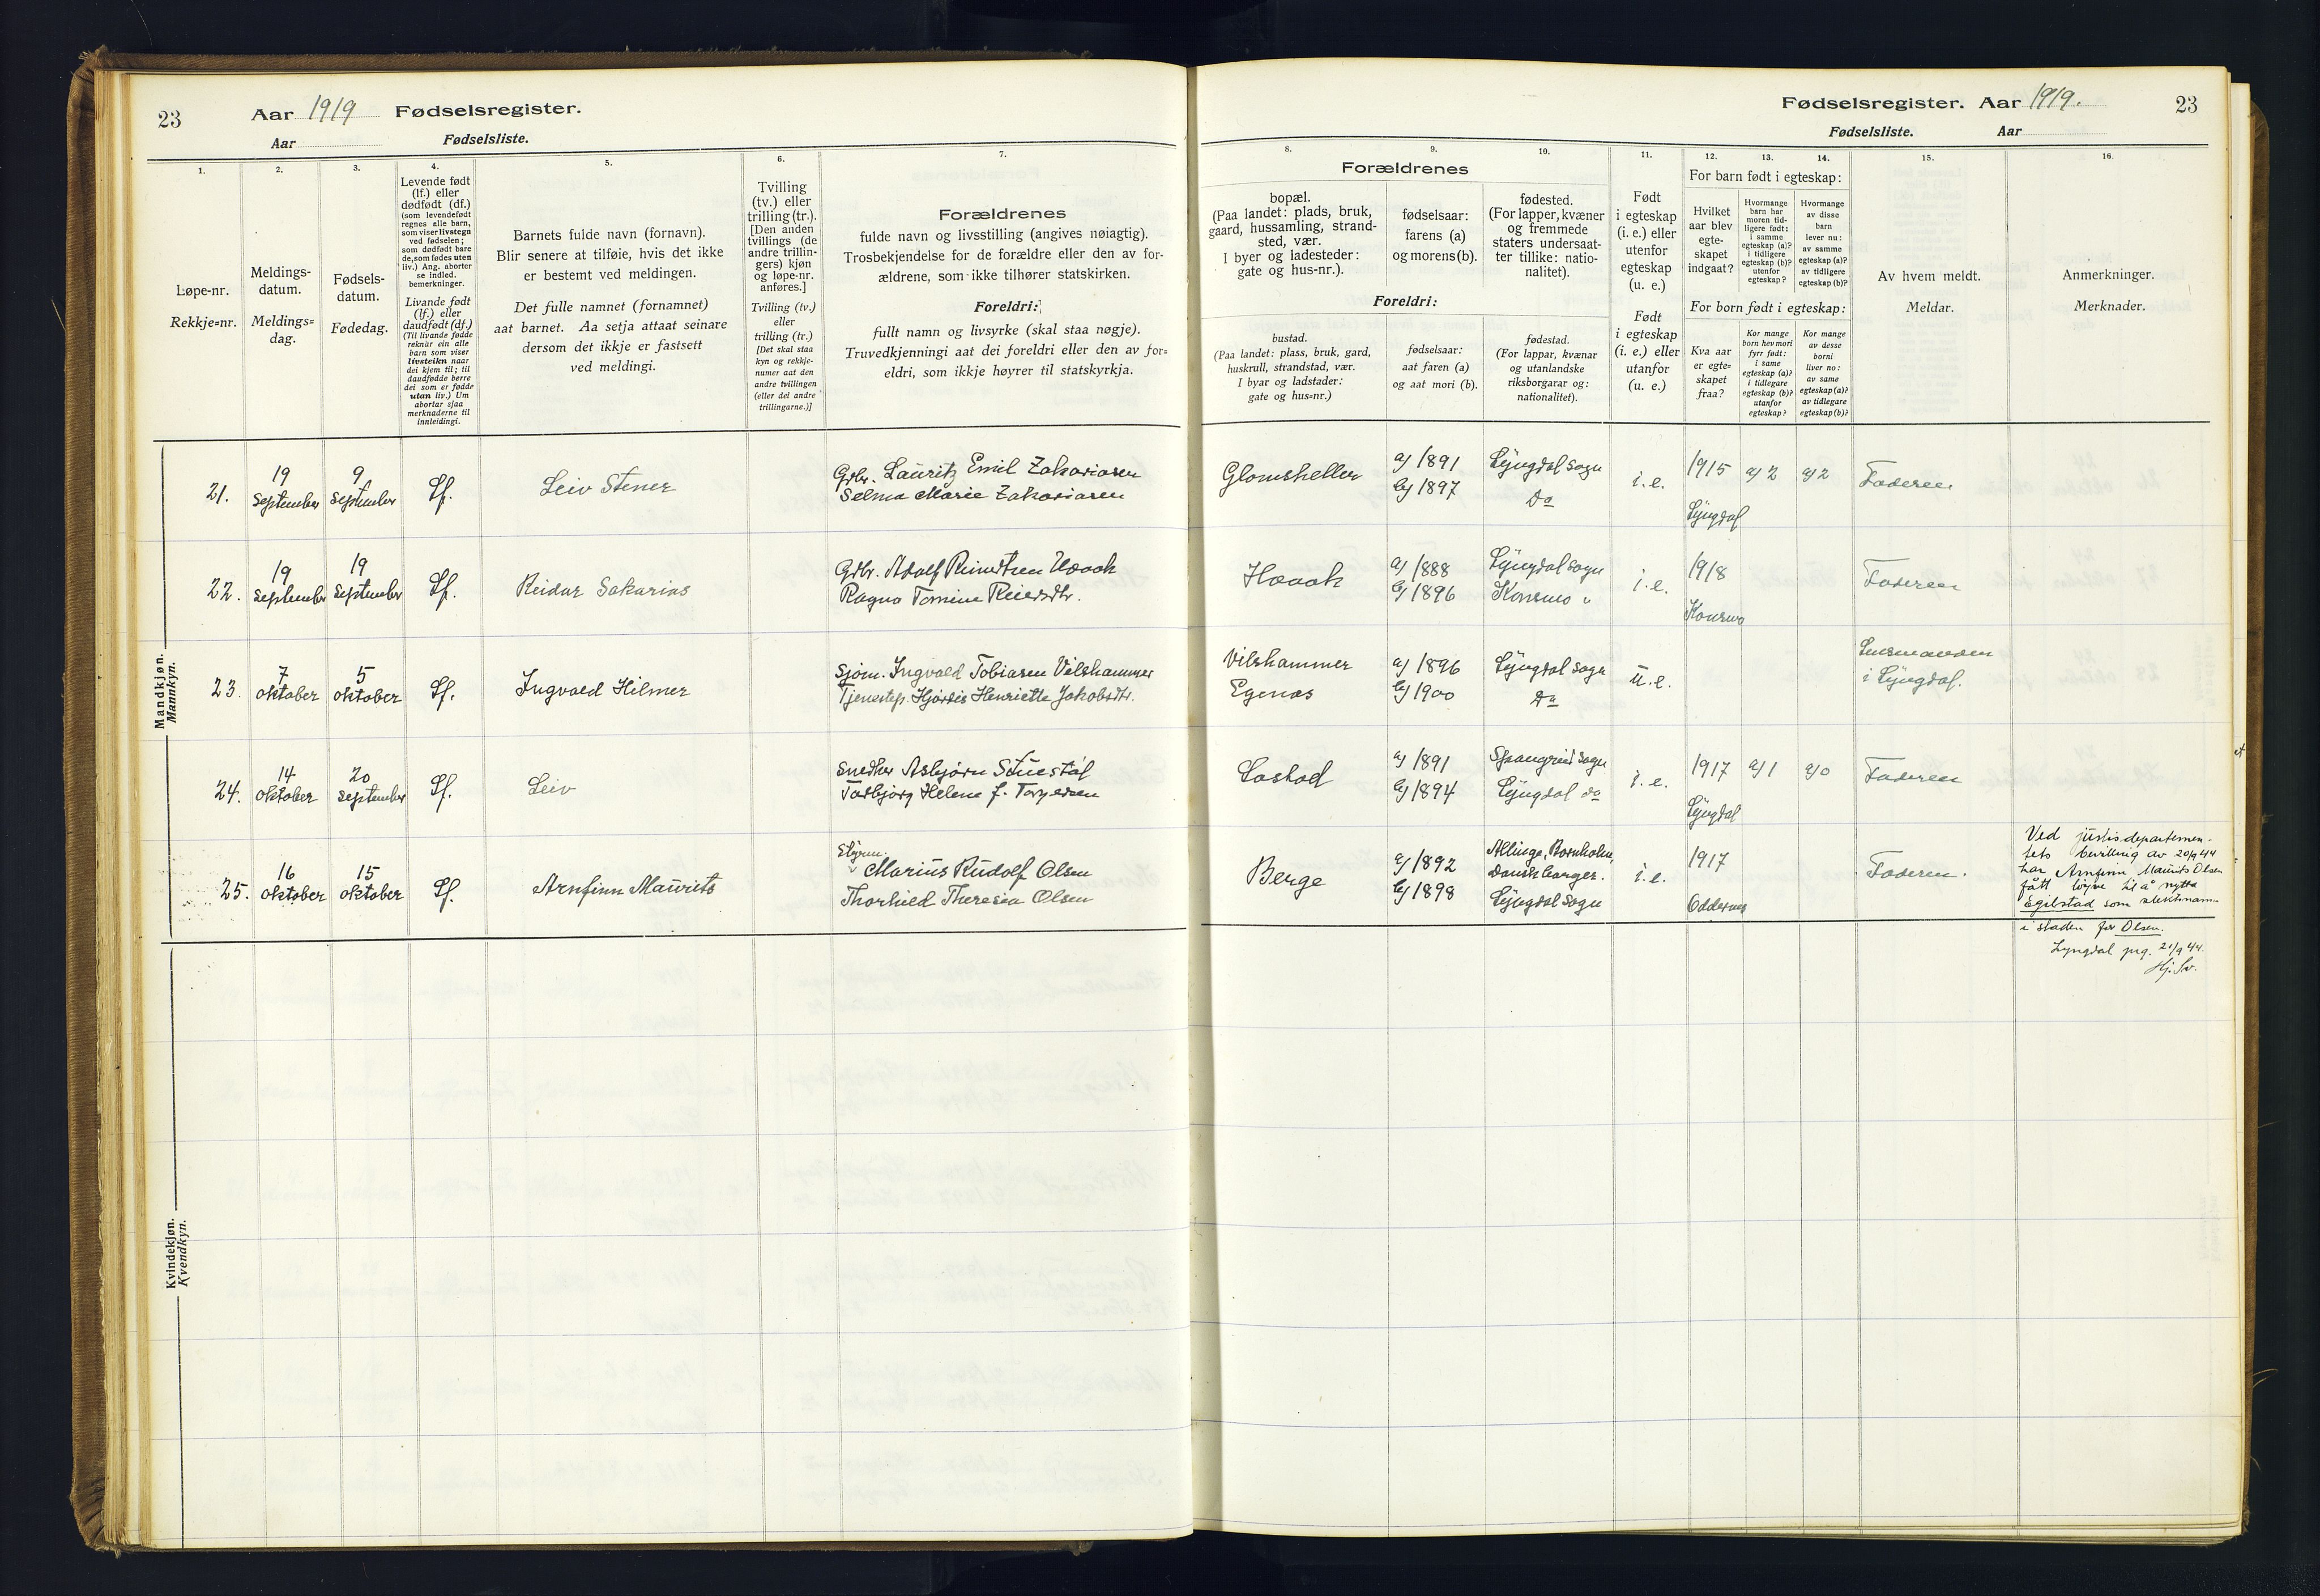 23 Aar 1919 Fødselsregister.
Aar Fødselsliste.
Fødselsregister. Aar 1919. 23
Fødselsliste. Aar
1.
Løpe-nr.
Rekkje=nr.
2.
Meldings-
datum.
Meldings=
dag.
3.
Fødsels-
datum.
Fødedag.
4.
Levende født
(lf.) eller
dødfødt (df.)
(som levendefødt
regnes alle barn,
som viser livstegn
ved fødselen;
som dødfødt bare
de, som fødes uten
liv.) Ang. aborter
se indled.
bemerkninger.
Livande født
(lf.) eller
daudfødt (df.)
(Til livande fødde
reknar ein alle
barn som viser
livsteikn naar
dei kjem til; til
daudfødde berre
dei som er fødde
utan liv.) Um
abortar sjaa
merknaderne til
innleidingi.
5.
Barnets fulde navn (fornavn).
Blir senere at tilføie, hvis det ikke
er bestemt ved meldingen.
Det fulle namnet (fornamnet)
aat barnet. Aa setja attaat seinare
dersom det ikkje er fastsett
ved meldingi.
6.
Tvilling
(tv.) eller
trilling (tr.).
[Den anden
tvillings (de
andre trillin-
gers) kjøn
og løpe-nr.
anføres.]
Tvilling (tv.)
eller
trilling (tr.)
[Det skal staa
kyn og rekkje-
numer aat den
andre tvillingen
(eller dei andre
trillingarne.)]
7.
Forældrenes
fulde navn og livsstilling (angives nøiagtig).
Trosbekjendelse for de forældre eller den av for-
ældrene, som ikke tilhører statskirken.
Foreldri:
fullt namn og livsyrke (skal staa nøgje).
Truvedkjenningi aat dei foreldri eller den av for=
eldri, som ikkje høyrer til statskyrkja.
Forældrenes
8.
bopæl.
(Paa landet: plads, bruk,
gaard, hussamling, strand-
sted, vær.
I byer og ladesteder:
gate og hus-nr.).
9.
fødselsaar:
farens (a)
og morens (b).
10.
fødested.
(For lapper, kvæner
og fremmede
staters undersaat-
ter tillike: natio-
nalitet).
Foreldri:
bustad.
(Paa landet: plass, bruk, gard,
huskrull, strandstad, vær.
I byar og ladstader:
gate og hus=nr.)
fødselsaar:
aat faren (a)
og aat mori (b).
fødestad.
(For lappar, kvænar
og utanlandske
riksborgarar og:
nationalitet).
11.
Født
i egteskap
(i. e.) eller
utenfor
egteskap
(u. e.)
Født
i egteskap
(i. e.) eller
utanfor
(u. e.)
12. 13. 14.
For barn født i egteskap:
Hvilket
aar blev
egte-
skapet
indgaat?
Hvormange
barn har
moren tid-
ligere født:
i samme
egteskap (a)?
i tidligere
egteskap (b)?
utenfor
egteskap?
Hvormange
av disse
barn
lever nu:
av samme
egteskap (a)?
av tidligere
egteskap (b)?
For born født i egteskap:
Kva aar
er egte=
skapet
fraa?
Kor mange
born hev mori
fyrr født:
i same
egteskap (a)?
i tidlegare
egteskap (b)?
utanfor
egteskap?
Kor mange
av desse
borni
liver no:
av same
egteskap (a)?
av tidlegare
egteskap (b)?
15.
Av hvem meldt.
Meldar.
16.
Anmerkninger.
Merknader.
Mandkjøn.
Mannkyn.
21. 19 September 9 September Lf. Leiv Stener
Grbr. Lauritz Emil Zakariasen
Selma Marie Zakariasen
Glomsheller a) 1891 Lyngdal sogn i. e. 1915 a) 2 a) 2 Faderen
b) 1897 Do Lyngdal
22. 19 September 19 September Lf. Reidar Sakarias
Grbr. Adolf Reinertsen Haaak
Ragna Tomine
Haaak a) 1888 Lyngdal sogn i. e. 1918 Faderen
b) 1896 Konsmo " Konsmo
23. 7 oktober 5 oktober Lf. Ingvald Hilmer
Sjøm. Ingvald Tobiasen Vilshammer
Tjenestep. Hjørdis Henriette Jakobsdtr.
Vilshammer a) 1896 Lyngdal sogn u. e. Lensmanden
Egenæs b) 1900 Do i Lyngdal.
24. 14 oktober 20 September Lf. Leiv
Snedker Asbjørn
Torbjørg Helene f. Torgersen
Løstad a) 1891 Spangereid sogn i. e. 1917 a) 1 a) 0 Faderen
b) 1894 Lyngdal do Lyngdal
25. 16 oktober 15 oktober Lf. Arnfinn Maurits
Styrm.
Marius Rudolf Olsen
Thorhild Theresia Olsen
Berge a) 1892 Allinge, Bornholm, i. e. 1917 Faderen.
Dansk borger.
b) 1898 Lyngdal sogn Oddernes
Ved justisdepartemen-
tets bevilling av 20/9 44
har Arnfinn Maurits Olsen
fått løyve til å nytta
Egilstad som slektsnamn
i staden for Olsen.
Lyngdal prg. 21/9 44.
Hj. Sv.
Kvindekjøn.
Kvendkyn.